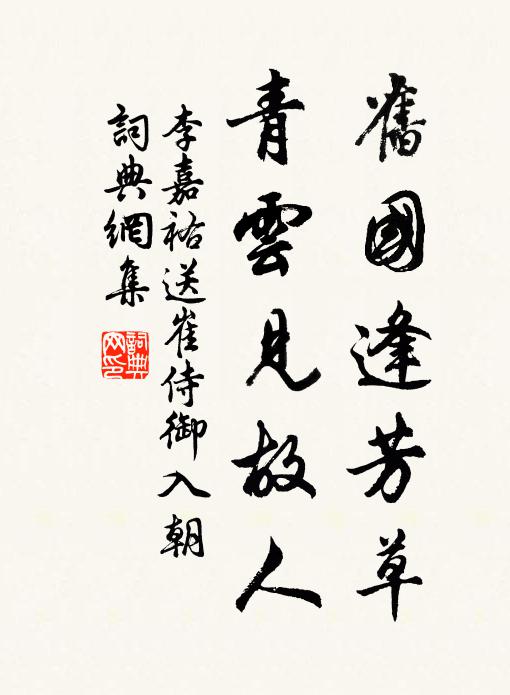 舊國逢芳草
青雲見故人
李嘉祐送崔侍御入朝
詞典網集
詞典網印